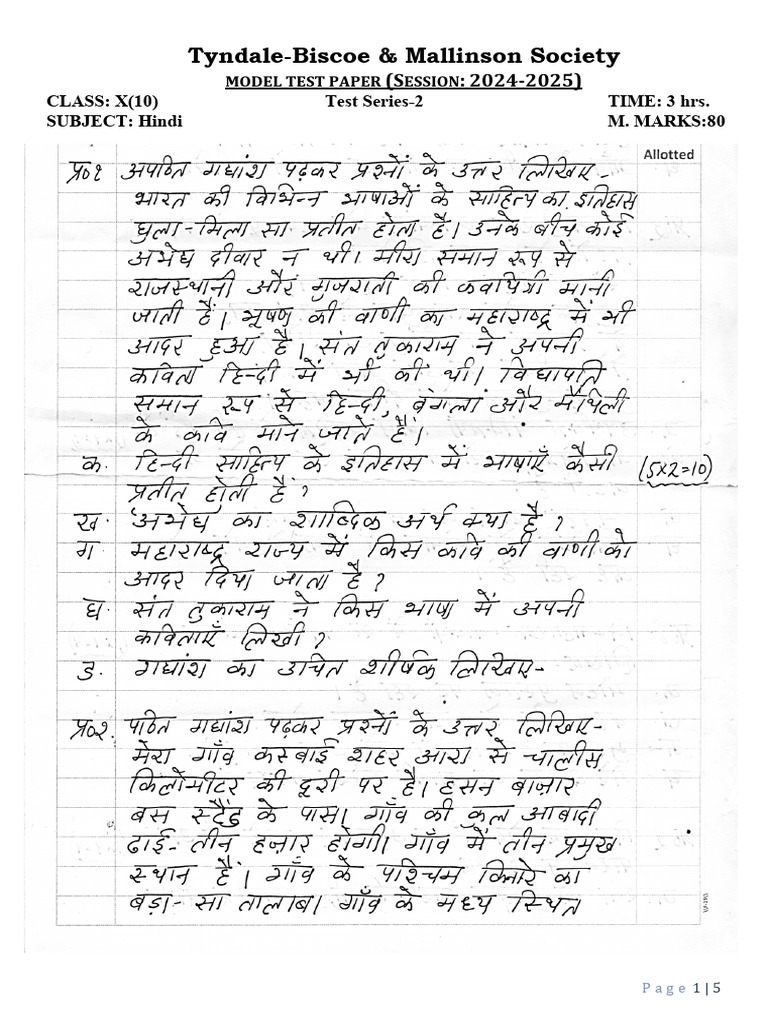 Tyndale-Biscoe & Mallinson Society
MODEL TEST PAPER (SESSION: 2024-2025)
CLASS: X(10) Test Series-2 TIME: 3 hrs.
SUBJECT: Hindi M. MARKS:80
Allotted
प्र०१ अपठित गद्यांश पढ़कर प्रश्नों के उत्तर लिखिए-
भारत की विभिन्न भाषाओं के साहित्य का इतिहास
घुला-मिला सा प्रतीत होता है। उनके बीच कोई
अभेद्य दीवार न थी। मीरा समान रूप से
राजस्थानी और गुजराती की कवयित्री मानी
जाती हैं। भूषण की वाणी का महाराष्ट्र में भी
आदर हुआ है। संत तुकाराम ने अपनी
कविता हिन्दी में भी की थी। विद्यापति
समान रूप से हिन्दी, बंगला और मैथिली
के कवि माने जाते हैं।
क. हिन्दी साहित्य के इतिहास में भाषाएँ कैसी (5x2=10)
प्रतीत होती हैं?
ख. 'अभेद्य' का शाब्दिक अर्थ क्या है?
ग महाराष्ट्र राज्य में किस कवि की वाणी को
आदर दिया जाता है?
घ. संत तुकाराम ने किस भाषा में अपनी
कविताएँ लिखी?
ड. गद्यांश का उचित शीर्षक लिखिए-
प्र०२. पठित गद्यांश पढ़कर प्रश्नों के उत्तर लिखिए-
मेरा गाँव कस्बाई शहर आरा से चालीस
किलोमीटर की दूरी पर है। हसन बाज़ार
बस स्टैंड के पास। गाँव की कुल आबादी
ढाई-तीन हज़ार होगी। गाँव में तीन प्रमुख
स्थान हैं। गाँव के पश्चिम किनारे का
बड़ा-सा तालाब। गाँव के मध्य स्थित
Page 1|5